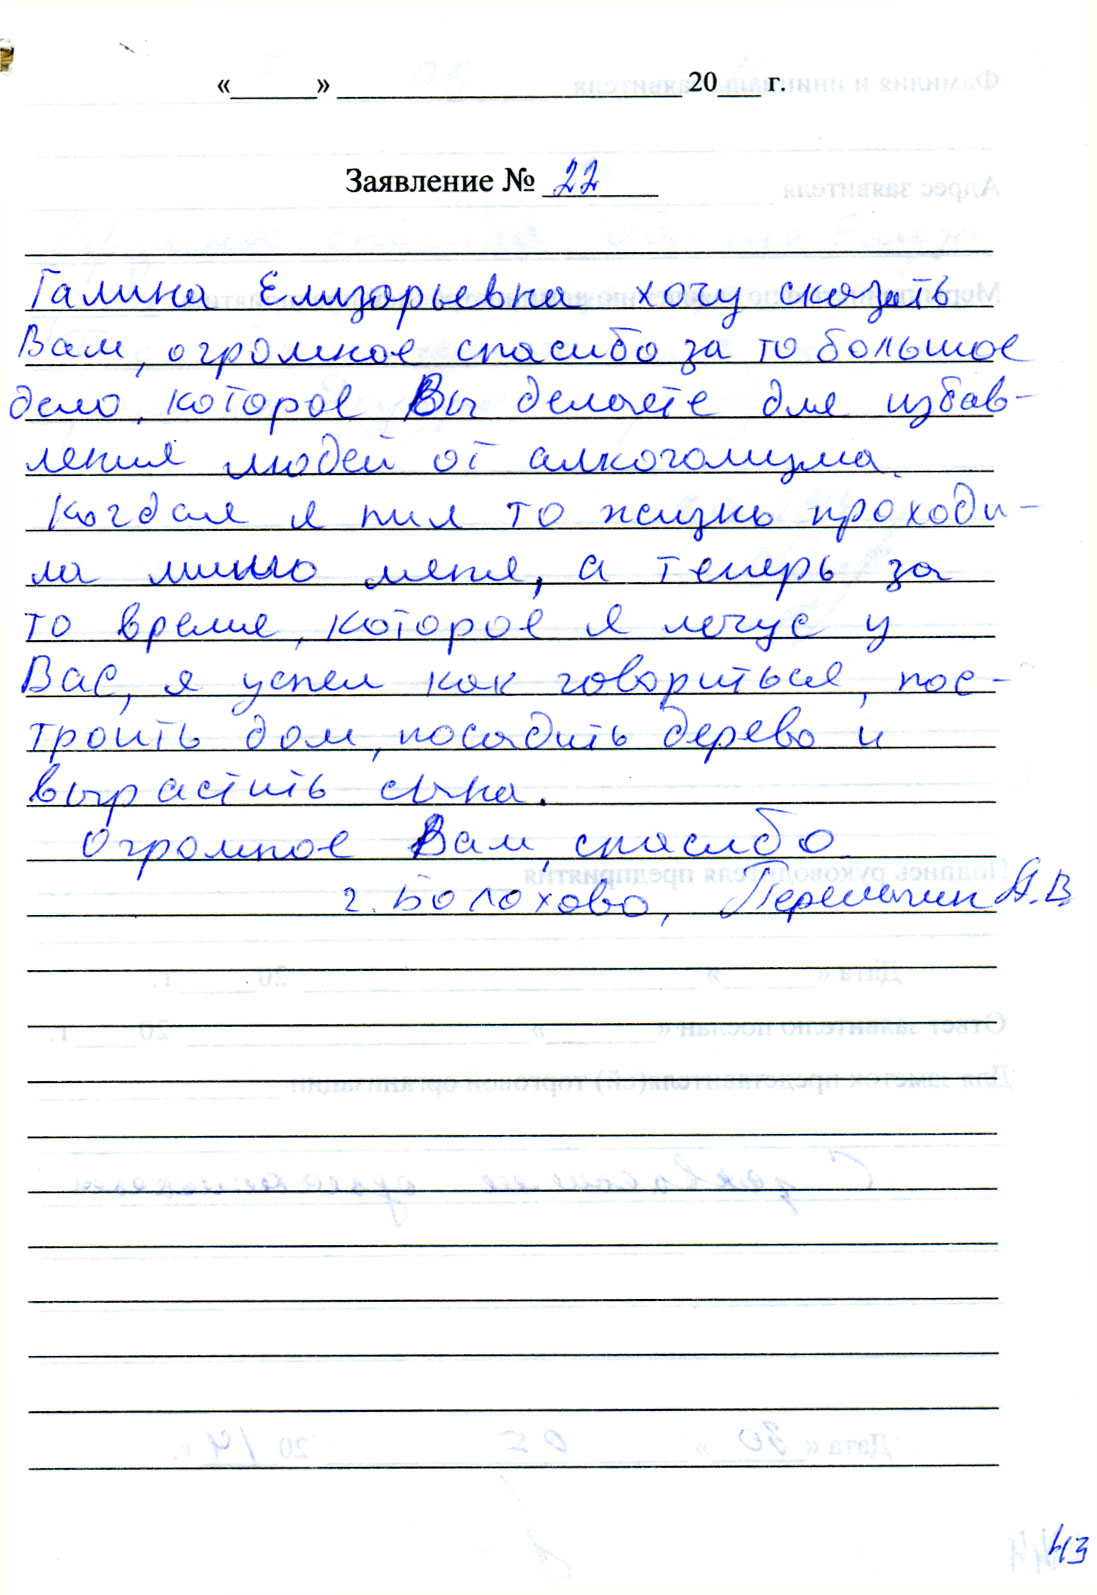 «______» ________________________ 20___ г.
Заявление № 22
Галина Елизарьевна хочу сказать
Вам, огромное спасибо за то большое
дело, которое Вы делаете для избав-
ления людей от алкоголизма.
Когда я пил то жизнь проходи-
ла мимо меня, а теперь за
то время, которое я лечусь у
Вас, я успел как говориться, пос-
троить дом, посадить дерево и
вырастить сына.
Огромное Вам, спасибо
г. Болохово,
43